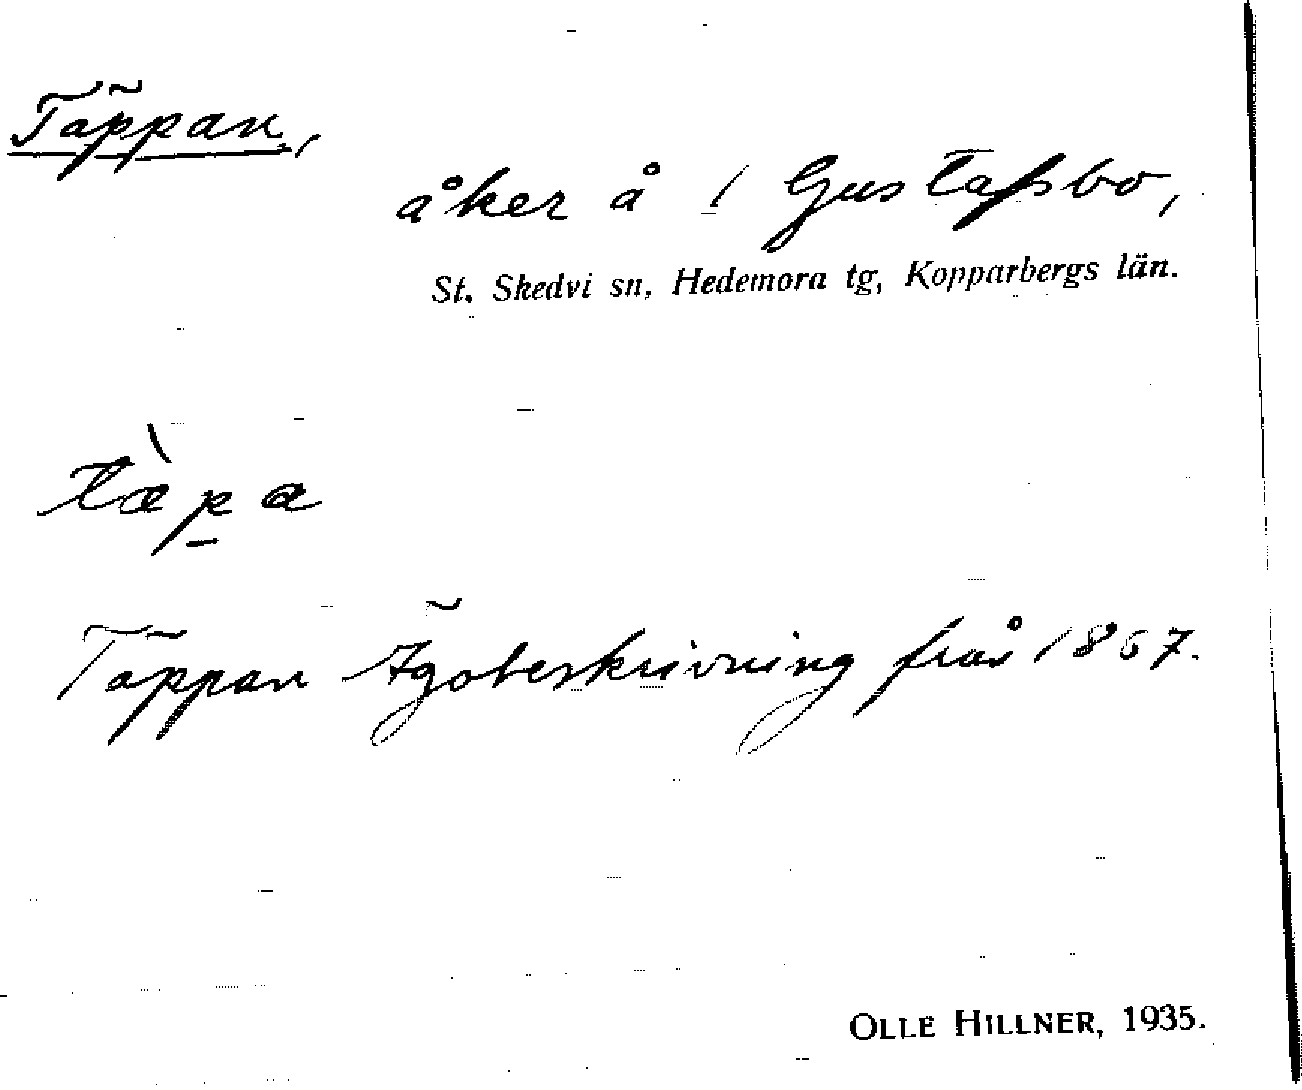 Täppan,
åker å 1 Gustafsbo,
St. Skedvi sn, Hedemora tg, Kopparbergs län.
tæ̀pa
Täppan Ägobeskrivning från 1867.
OLLE HILLNER, 1935.